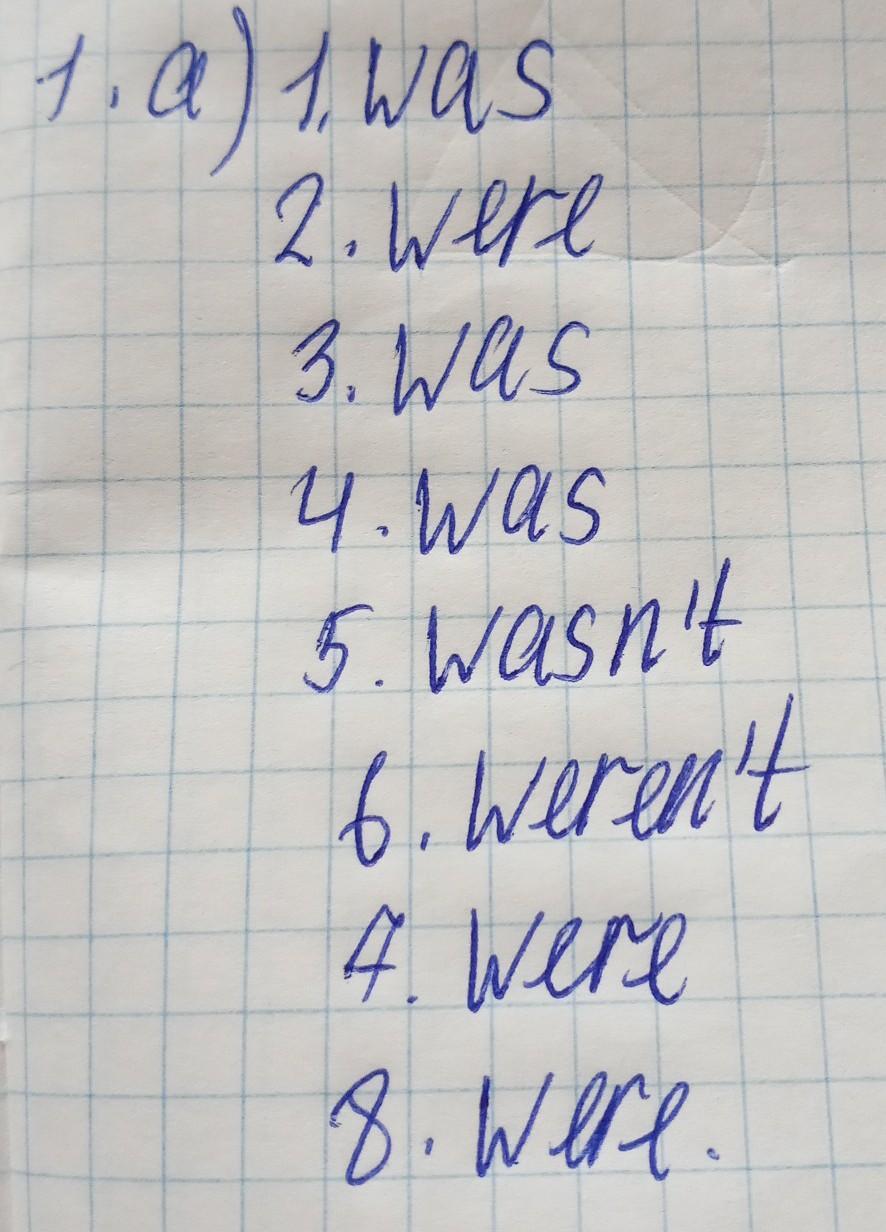 1. a) 1. was
2. were
3. was
4. was
5. wasn't
6. weren't
7. were
8. were.